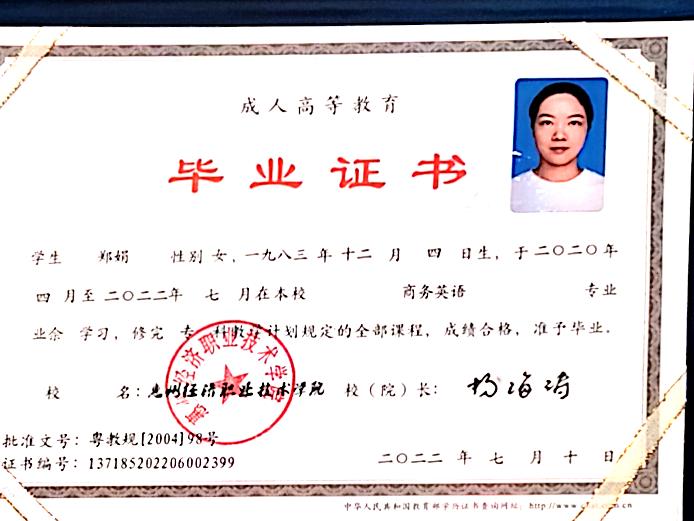 成人高等教育
毕业证书
学生 郑娟 性别 女，一九八三 年 十二 月 四 日生，于二〇二〇年
四 月至 二〇二二年 七 月在本校 商务英语 专业
业余 学习，修完 专 科教学计划规定的全部课程，成绩合格，准予毕业。
校 名：惠州经济职业技术学院 校（院）长：
惠州经济职业技术学院
批准文号：粤教规[2004]98号
证书编号：137185202206002399 二〇二二 年 七 月 十 日
中华人民共和国教育部学历证书查询网址：http://www.chsi.com.cn